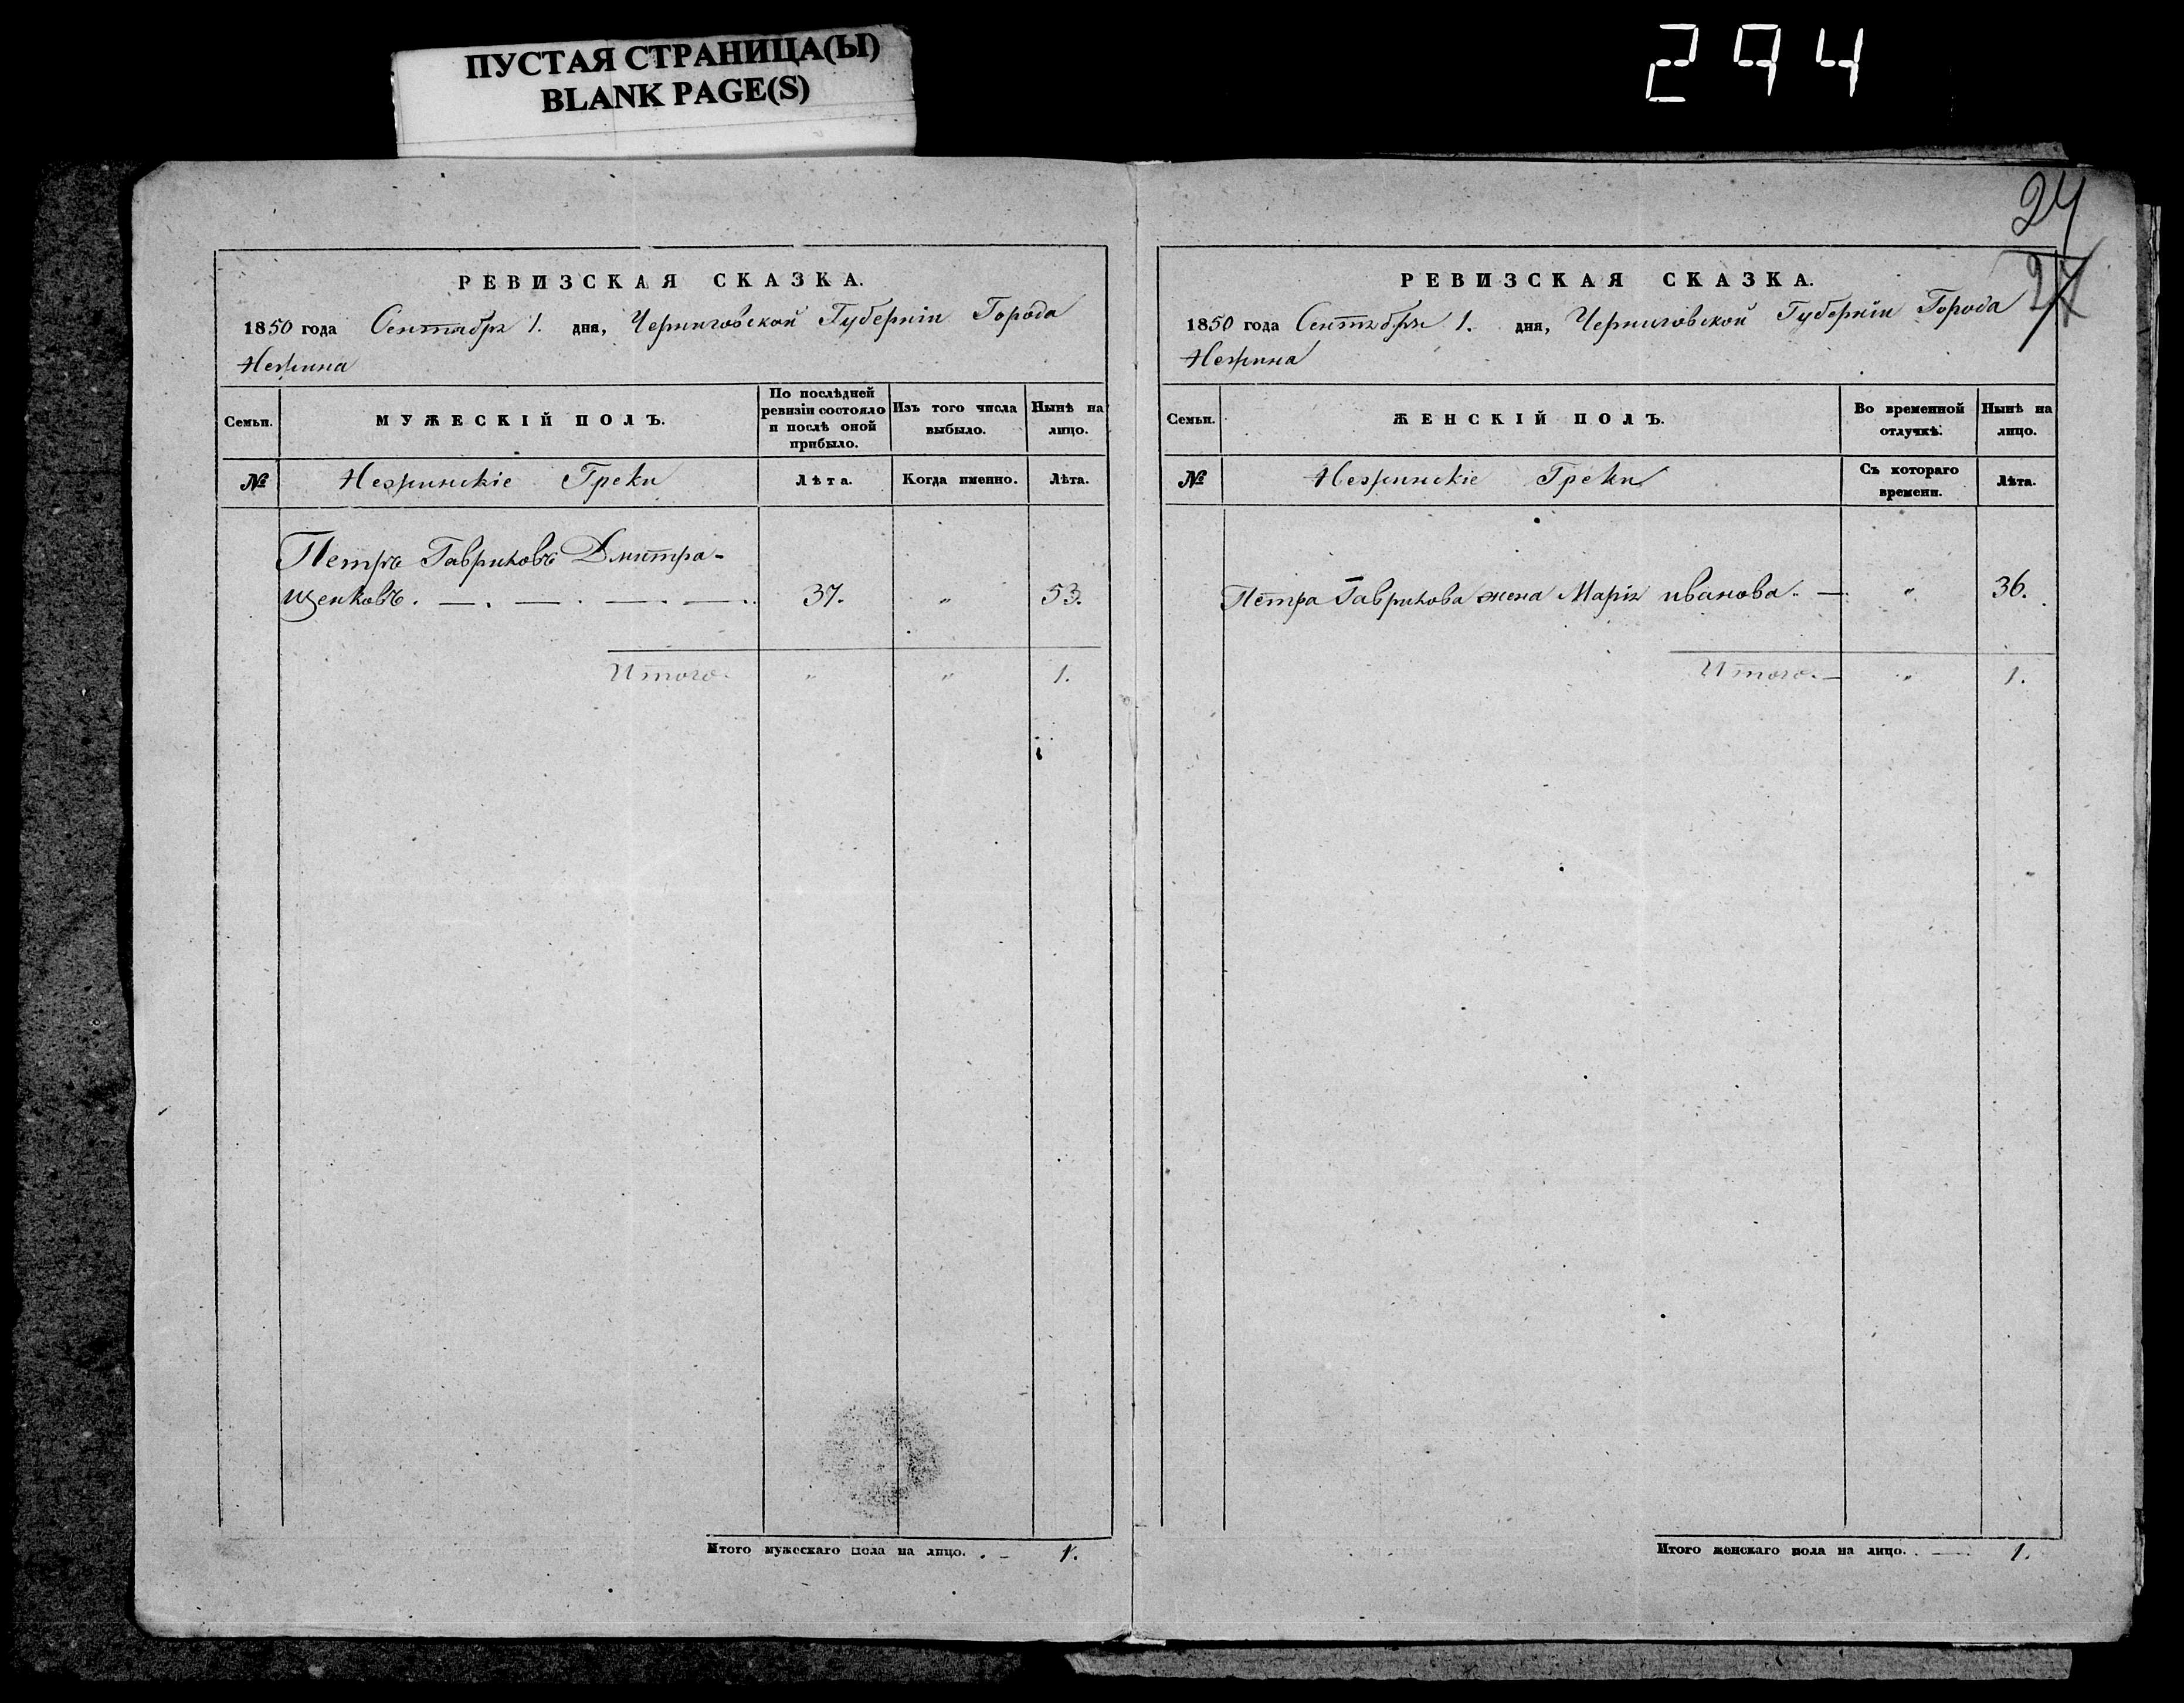 ПУСТАЯ СТРАНИЦА(Ы)
BLANK PAGE(S)
294
РЕВИЗСКАЯ СКАЗКА.
1850 года Сентября 1. дня, Черниговской Губерніи Города
Нежина
Семьи.
МУЖЕСКІЙ ПОЛЪ.
По послѣдней ревизіи состояло и послѣ оной прибыло.
Изъ того числа выбыло.
Нынѣ на лицо.
№
Нежинскіе Греки
Лѣта.
Когда именно.
Лѣта.
Петръ Гавриловъ Дмитра-
щенковъ. — . — . — . — . 37. " 53.
Итого. " " 1.
Итого мужескаго пола на лицо. . - 1.
24
27
РЕВИЗСКАЯ СКАЗКА.
1850 года Сентября 1. дня, Черниговской Губерніи Города
Нежина
Семьи.
ЖЕНСКІЙ ПОЛЪ.
Во временной отлучкѣ.
Нынѣ на лицо.
№
Нежинскіе Греки
Съ котораго времени.
Лѣта.
Петра Гаврилова жена Марія иванова. — " 36.
Итого. — " 1.
Итого женскаго пола на лицо. . — 1.